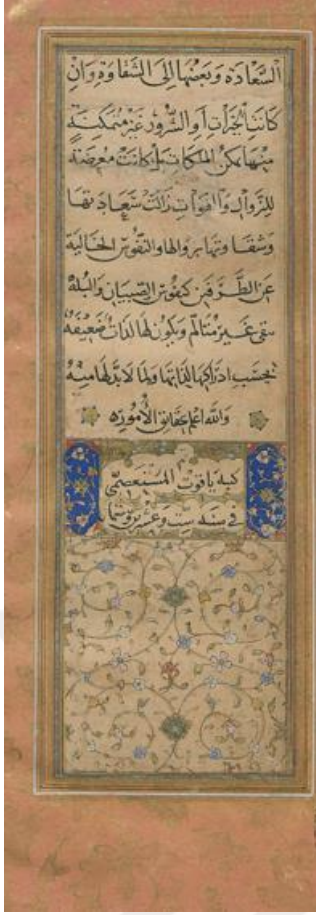 السَّعَادَة وَبَعْضُهَا إِلَى الشَّقَاوَةِ وَإِنْ
كَانَتِ الْخَيْرَاتُ أَوِ الشُّرُورُ غَيْرَ مُتَمَكِّنَةٍ
مِنْهَا لَكِنَّ الْمَلَكَاتِ كَانَتْ مُعَرَّضَةً
لِلزَّوَالِ وَالْفَوَاتِ زَالَتْ سَعَادَتُهَا
وَشَقَاوَتُهَا بِزَوَالِهَا وَالنُّفُوسُ الْخَالِيَةُ
عَنِ الطَّرَفَيْنِ كَنُفُوسِ الصِّبْيَانِ وَالْبُلْهِ
تبقى غَيْرَ مُتَأَلِّمٍ وَيَكُونُ لَهَا لَذَّاتٌ ضَعِيفَةٌ
بِحَسَبِ إِدْرَاكِهَا لِذَاتِهَا وَلِمَا لَابُدَّ لَهَا مِنْهُ
وَاللهُ أَعْلَمُ بِحَقَائِقِ الْأُمُورِ
كتبه ياقوت المستعصمي
في سنه ست وعشرين وستمايه